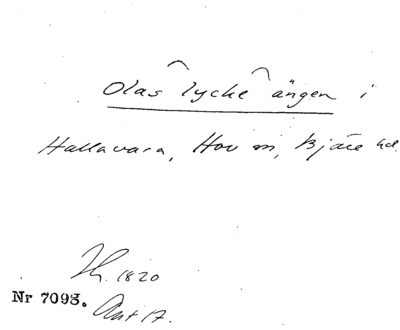 Olas lycke ängen i
Hallavara, Hov sn, Bjäre hd.
1820
Nr 7098.
Ant 17.